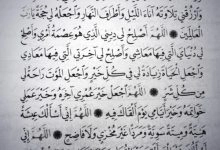 وَارْزُقْنِي تِلَاوَتَهُ آنَاءَ اللَّيْلِ وَأَطْرَافَ النَّهَارِ وَاجْعَلْهُ لِي حُجَّةً يَارَبَّ
الْعَالَمِينَ ۞ اللَّهُمَّ أَصْلِحْ لِي دِينِي الَّذِي هُوَ عِصْمَةُ أَمْرِي وَأَصْلِحْ
لِي دُنْيَايَ الَّتِي فِيهَا مَعَاشِي وَأَصْلِحْ لِي آخِرَتِي الَّتِي فِيهَا مَعَادِي
وَاجْعَلِ الْحَيَاةَ زِيَادَةً لِي فِي كُلِّ خَيْرٍ وَاجْعَلِ الْمَوْتَ رَاحَةً لِي
مِنْ كُلِّ شَرٍّ ۞ اللَّهُمَّ اجْعَلْ خَيْرَ عُمْرِي آخِرَهُ وَخَيْرَ عَمَلِي
خَوَاتِمَهُ وَخَيْرَ أَيَّامِي يَوْمَ أَلْقَاكَ فِيهِ ۞ اللَّهُمَّ إِنِّي أَسْأَلُكَ عِيشَةً
هَنِيَّةً وَمِيتَةً سَوِيَّةً وَمَرَدًّا غَيْرَ مُخْزٍ وَلَا فَاضِحٍ ۞ اللَّهُمَّ إِنِّي